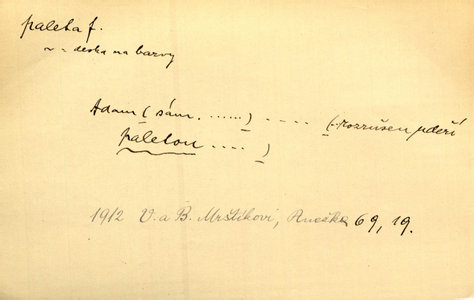 paleta f.
~ = deska na barvy
Adam ( sám. ......) .... (-rozrušen udeří
paletou .... )
1912 V. a B. Mrštíkovi, Anežka 69, 19.